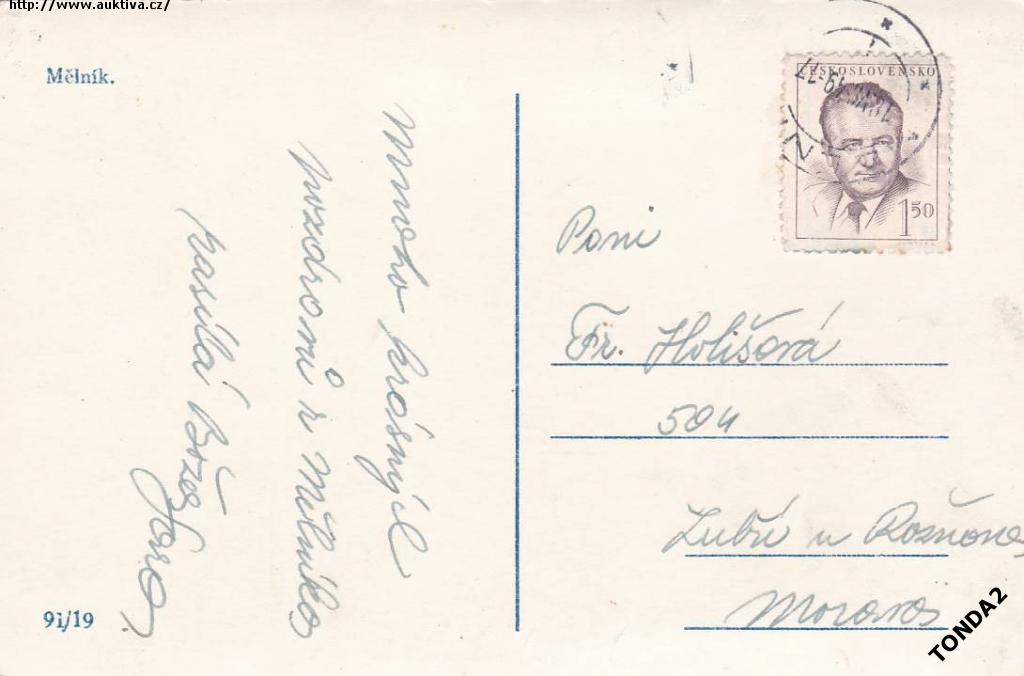 http://www.auktiva.cz/
Mělník.
Mnoho krásných
pozdravů z Mělníka
zasílá Boža
ČESKOSLOVENSKO
1 50
Paní
Fr. Holišová
504
Zubří u Rožnova
Morava
91/19
TONDA2